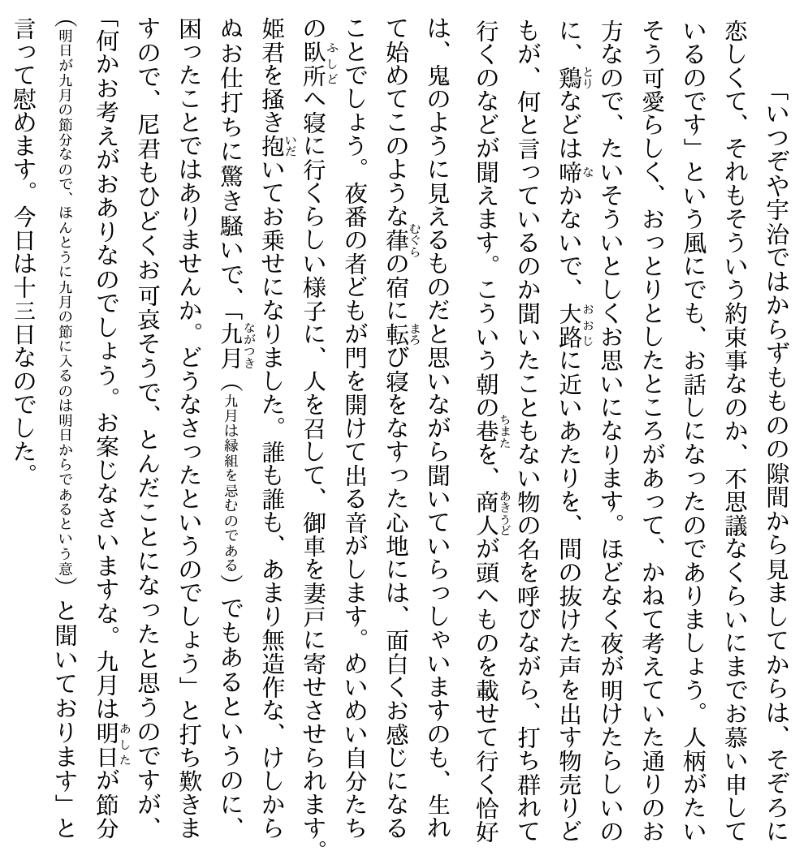 「いつぞや宇治ではからずもものの隙間から見ましてからは、そぞろに
恋しくて、それもそういう約束事なのか、不思議なくらいにまでお慕い申して
いるのです」という風にでも、お話しになったのでありましょう。人柄がたい
そう可愛らしく、おっとりとしたところがあって、かねて考えていた通りのお
方なので、たいそういとしくお思いになります。ほどなく夜が明けたらしいの
に、鶏などは啼かないで、大路に近いあたりを、間の抜けた声を出す物売りど
もが、何と言っているのか聞いたこともない物の名を呼びながら、打ち群れて
行くのなどが聞えます。こういう朝の巷を、商人が頭へものを載せて行く恰好
は、鬼のように見えるものだと思いながら聞いていらっしゃいますのも、生れ
て始めてこのような葎の宿に転び寝をなすった心地には、面白くお感じになる
ことでしょう。夜番の者どもが門を開けて出る音がします。めいめい自分たち
の臥所へ寝に行くらしい様子に、人を召して、御車を妻戸に寄せさせられます。
姫君を掻き抱いてお乗せになりました。誰も誰も、あまり無造作な、けしから
ぬお仕打ちに驚き騒いで、「九月（九月は縁組を忌むのである）でもあるというのに、
困ったことではありませんか。どうなさったというのでしょう」と打ち歎きま
すので、尼君もひどくお可哀そうで、とんだことになったと思うのですが、
「何かお考えがおありなのでしょう。お案じなさいますな。九月は明日が節分
（明日が九月の節分なので、ほんとうに九月の節に入るのは明日からであるという意）と聞いております」と
言って慰めます。今日は十三日なのでした。